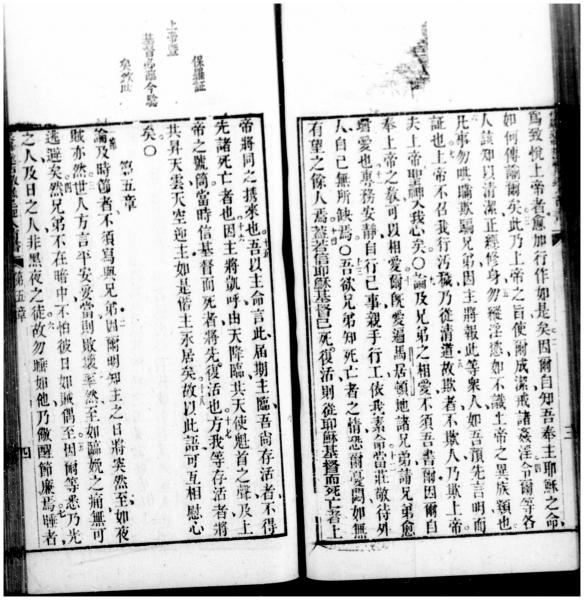 三
爲致悅上帝者愈加行作如是矣因爾自知吾奉主耶穌之命
如何傳諭爾矣此乃上帝之旨使爾成潔戒諸姦淫令爾等各
人該知以清潔正經修身勿縱淫慾如不識上帝之異族類也
凡事勿哄欺騙兄弟因主將報此等衆人如吾預先言明而
證也上帝不召我行汚穢乃從清道故欺者不欺人乃欺上帝
夫上帝聖神入我心矣〇論及兄弟之相愛不須吾書爾因爾自
奉上帝之敎可以相愛爾旣愛遍馬居頓地諸兄弟請兄弟愈
增愛也專務安靜自行己事親手行工依我素命當莊敬待外
人自己無所缺焉〇吾欲兄弟知死亡者之情恐爾憂悶如無
有望之餘人焉蓋若信耶穌基督已死復活則從耶穌基督而死亡者上
保羅証
上帝暨
基督必臨今驗
矣
帝將同之攜來也吾以主命言此屆期主臨吾尚存活者不得
先諸死亡者也因主將凱呼由天降臨共天使魁首之聲及上
帝之號筒當時信基督而死者將先復活也方我等存活者將
共昇天雲天空迎主如是偕主永居矣故以此語可互相慰心
矣〇
第五章
論及時節者不須寫與兄弟因爾明知主之日將突然至如夜
賊亦然世人方言平安妥當則敗壞突然至如臨娩之痛無可
逃避矣然兄弟不在暗中不怕彼日如賊偶至因爾等悉乃光
之人及日之人非黑夜之徒故勿睡如他乃儆醒節廉焉睡者
第五章
四